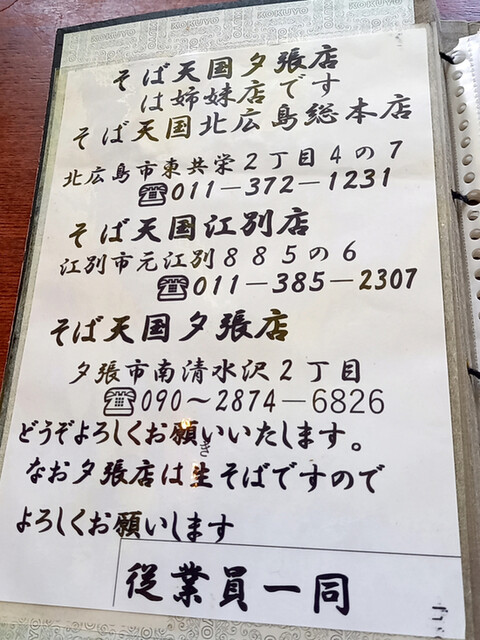 KOKUYO
そば天国夕張店
は姉妹店です
そば天国北広島総本店
北広島市東共栄2丁目4の7
☎011－372－1231
そば天国江別店
江別市元江別885の6
☎011－385－2307
そば天国夕張店
夕張市南清水沢2丁目
☎090～2874－6826
どうぞよろしくお願いいたします。
き
なお夕張店は生そばですので
よろしくお願いします
従業員一同